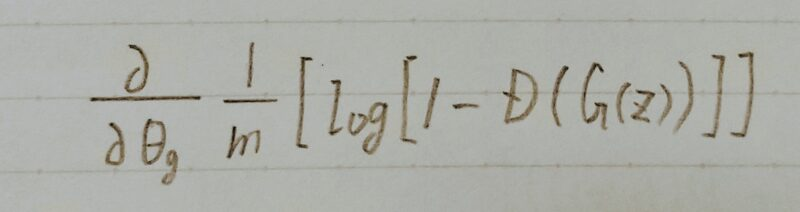 ∂/∂θg 1/m [log[1 - D(G(z))]]